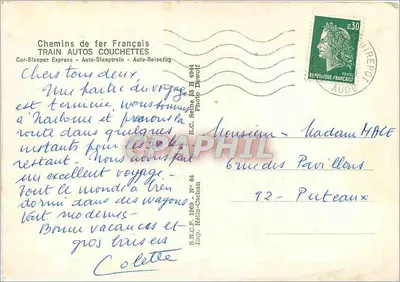 Chemins de fer Français
TRAIN AUTOS COUCHETTES
Car-Sleeper Express - Auto-Slaaptrein - Auto-Reisezug
Chers tous deux,
Une partie du voyage
est terminée, nous sommes
à Narbonne et prenons la
route dans quelques
instants pour le
restant - Nous avons fait
un excellent voyage -
Tout le monde a bien
dormi dans des wagons
tout modernes -
Bonne vacances et
gros baisers
Colette
S.N.C.F. 1969 - N° 64
Imp. Hélio-Cachan
R.C. Seine 55 B 4944
Photo Dewolf
0,30
REPUBLIQUE FRANÇAISE
AUDE
CPAPHIL
Monsieur - Madame MACE
6 rue des Pavillons
92 - Puteaux